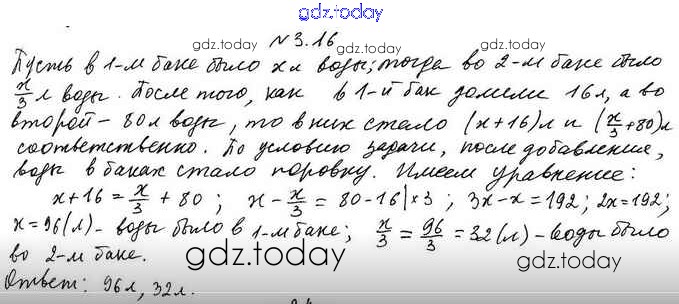 gdz.today
№3.16
gdz.today gdz.today
Пусть в 1-м баке было x л воды; тогда во 2-м баке было
x/3 л воды. После того, как в 1-й бак долили 16 л, а во
второй - 80 л воды, то в них стало (x+16) л и (x/3+80) л
соответственно. По условию задачи, после добавления,
воды в баках стало поровну. Имеем уравнение:
x+16 = x/3 + 80 ; x - x/3 = 80-16 |×3 ; 3x-x=192; 2x=192;
x=96(л)- воды было в 1-м баке; x/3 = 96/3 = 32(л)-воды было
во 2-м баке.
gdz.today gdz.today
Ответ: 96л, 32л.